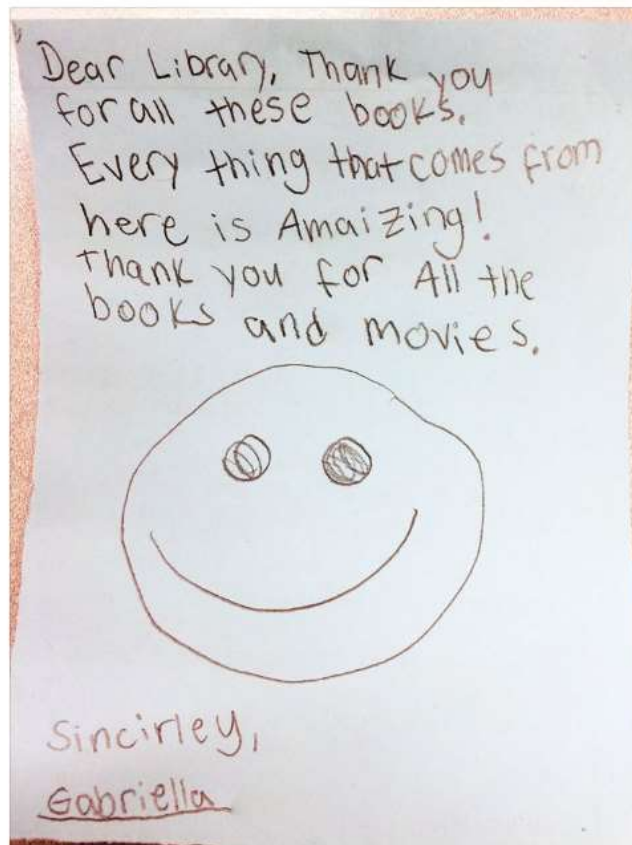 Dear Library, Thank you
for all these books.
Every thing that comes from
here is Amaizing!
Thank you for All the
books and movies.
Sincirley,
Gabriella